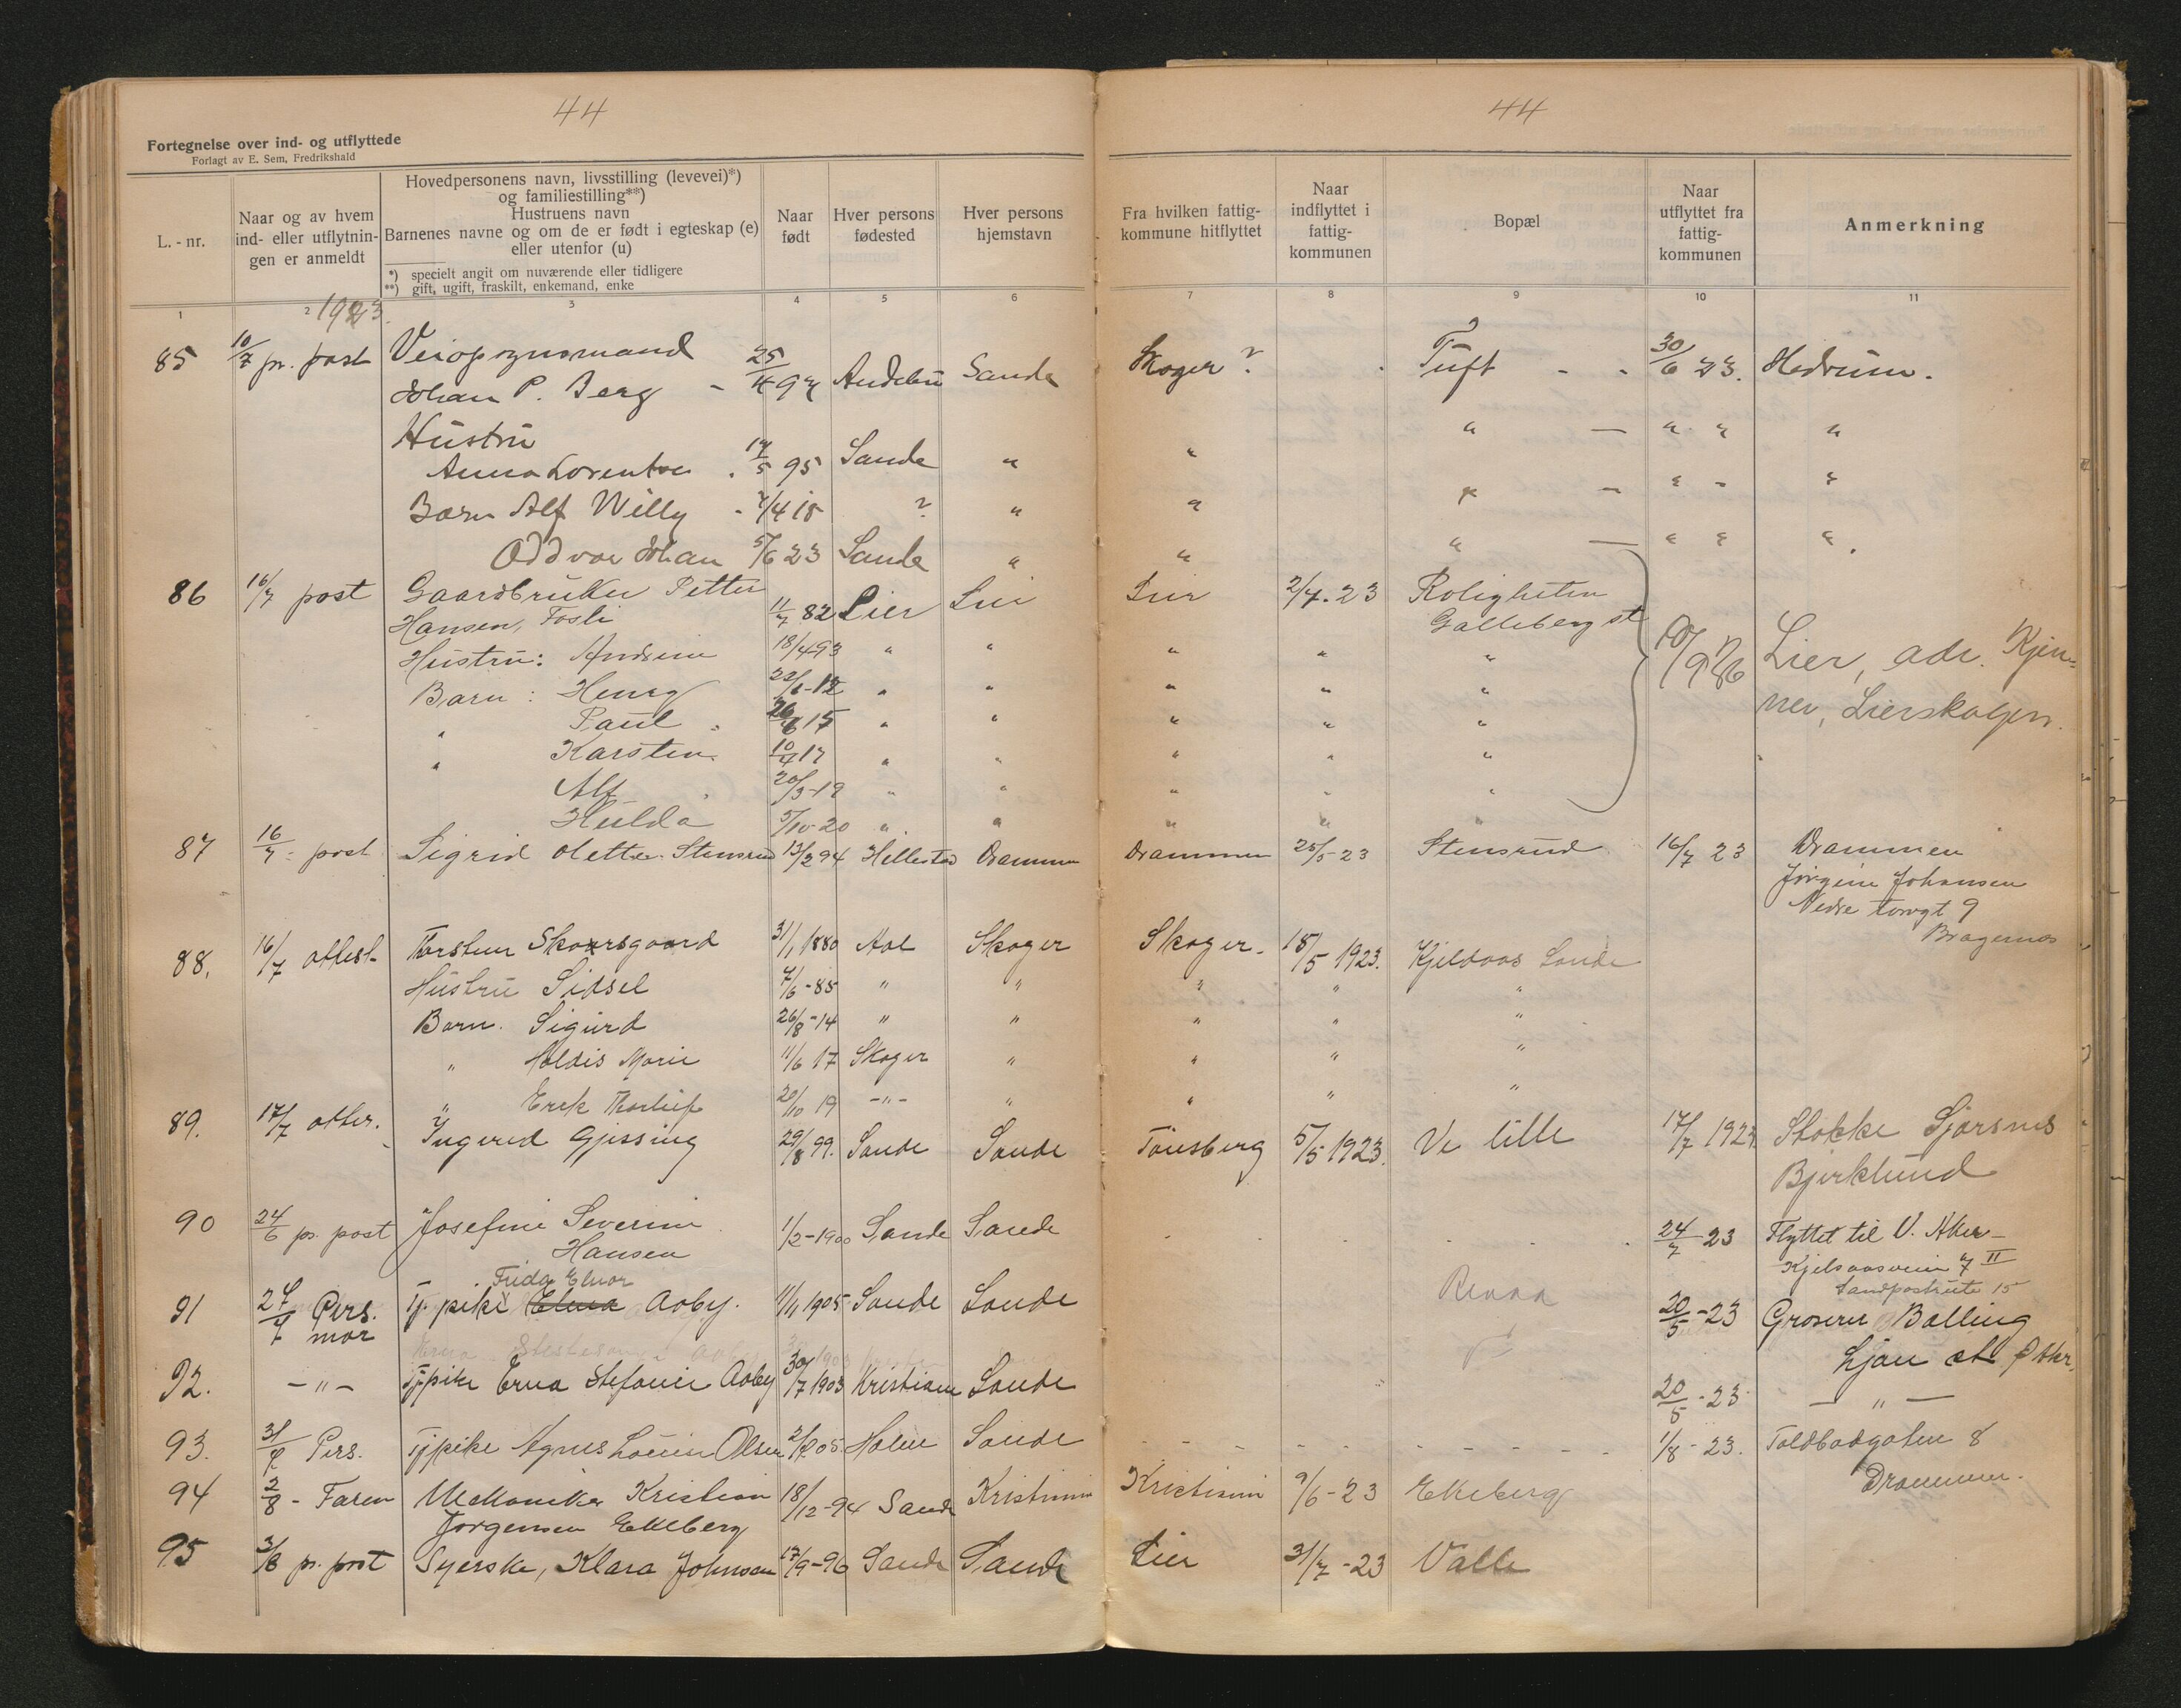 44
44
Fortegnelse over ind- og utflyttede
Forlagt av E. Sem, Fredrikshald
L. - nr.
Naar og av hvem ind- eller utflytnin- gen er anmeldt
Hovedpersonens navn, livsstilling (levevei)*) og familiestilling**)
Hustruens navn
Barnenes navne og om de er født i egteskap (e) eller utenfor (u)
*) specielt angit om nuværende eller tidligere
**) gift, ugift, fraskilt, enkemand, enke
Naar født
Hver persons fødested
Hver persons hjemstavn
Fra hvilken fattig- kommune hitflyttet
Naar indflyttet i fattig- kommunen
Bopæl
Naar utflyttet fra fattig- kommunen
Anmerkning
1 2 3 4 5 6 7 8 9 10 11
1923
85 10/7 pr. post Veiopsynsmand
Johan P. Berg - 25/4 97 Andebu Sande Skoger ? Tuft - - 30/6 23. Hedrum.
Hustru
Anna Lorentse 17/5 95 Sande " " " — " " "
Barn Alf Willy - 7/4 18 ? " " " — " - "
Oddvar Johan 5/6 23 Sande " " " — " " "
86 16/7 post Gaardbruker Petter
Hansen, Fosli 11/7 82 Lier Lier Lier 2/7. 23 Roligheten
Galleberg st
Hustru: Andrine 18/4 93 " " " " " 10/9 26 Lier, adr. Kjen=
Barn: Henry 22/6-12 " " " " " ner, Lierskogen.
" Paul 26/6 15 " " " " "
" Karsten 10/4 17 " " " " "
Alf 20/3-19 " " " " "
Hulda 5/10-20 " " " " "
87 16/7 - post Sigrid Olette Stensrud 13/2 94 Hillestad Drammen Drammen 25/5-23 Stensrud 16/7 23 Drammen
Jørgine Johansen
Nedre torvgt 9
Bragernes
88. 16/7 attest Thorstein Skarsgaard 31/1 1880 Aal Skoger Skoger. 15/5 1923. Kjeldaas Sande
Hustru Sidsel 7/6-85 " " " " "
Barn. Sigurd 26/8-14 " " " " "
" Haldis Marie 11/6 17 Skoger " " " "
" Erik Thorleif 20/10 19 -"- " " " "
89. 17/7 atter. Ingerid Gjessing 29/8 99. Sande Sande Tønsberg 5/5 1923. Ve lille 17/7 1923 Stokke Sjørsnes
Bjerklund
90 24/6 pr. post Josefine Severine
Hansen 1/2-1900 Sande Sande 24/7 23 Flyttet til V. Aker-
Kjelsaasveien 7 II
Landpostrute 15
Frida Elnor
91 27/7 Pers. mor Tj. pike Elna Aaby. 11/11 1905 Sande Sande Revaa 20/5-23 Groserer Balling
Ljan st Ø Aker.
92. -"- Tjpike Erna Stefanie Aaby 30/7 1903 Kristiania Sande 20/5-23 — " —
93. 31/7 Pers. Tjpike Agnes Louise Olsen 05 Holm Sande - - - 1/8-23. Toldbodgaten 8
Drammen.
94 2/8 - Faren Mekaniker Kristian
Jørgensen Ekeberg 18/12-94 Sande Kristiania Kristiania 9/6-23 Ekeberg
95 3/8 pr. post Syerske, Klara Johnsen 17/9-96 Sande Sande Lier 31/7-23 Valle